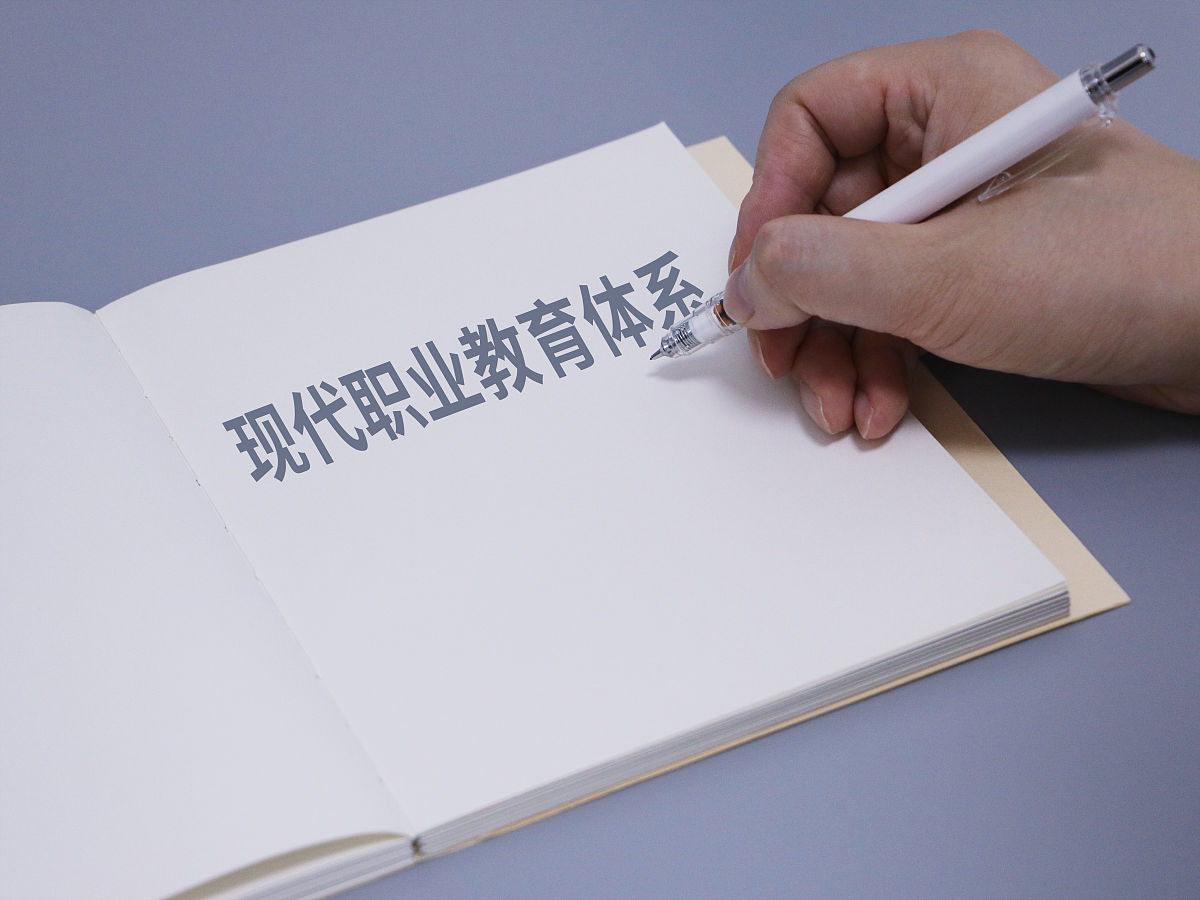 现代职业教育体系